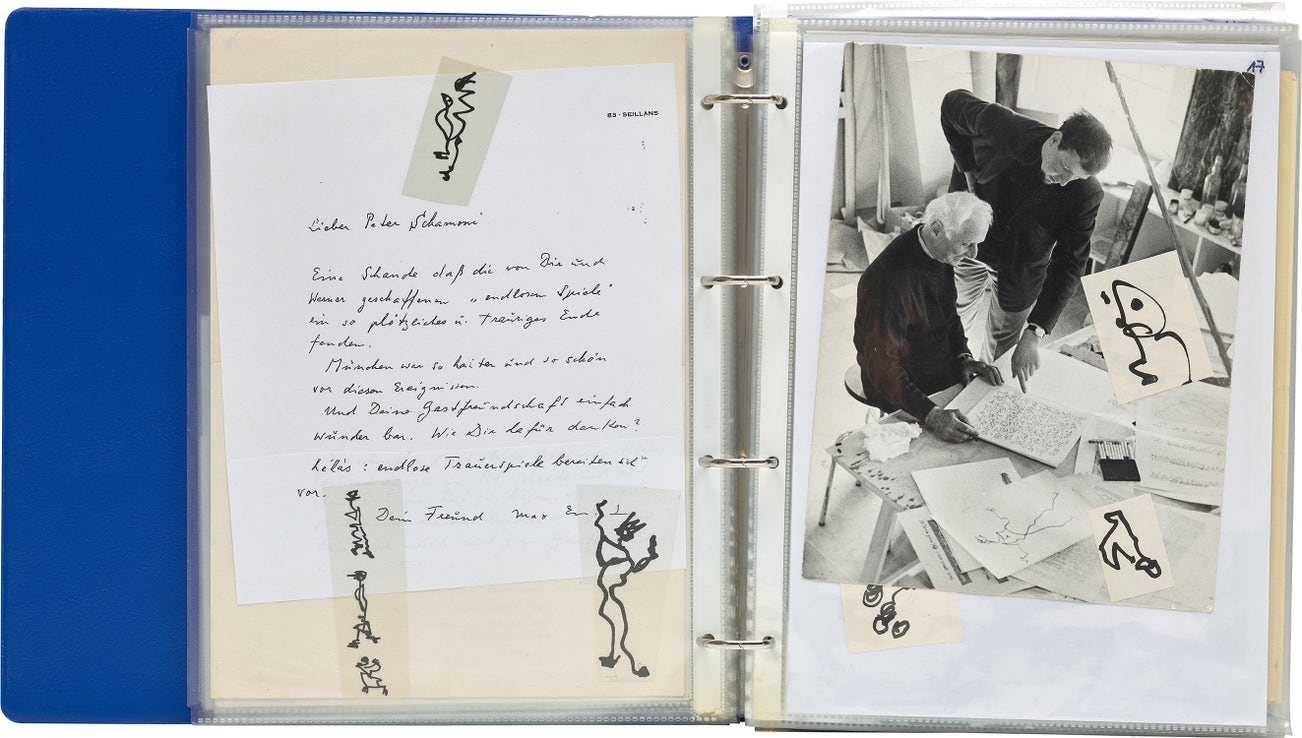 83 · SEILLANS
Lieber Peter Schamoni
Eine Schande daß die von Dir und
Werner geschaffenen „endlosen Spiele"
ein so plötzliches u. trauriges Ende
fanden.
München war so haiter und so schön
vor diesen Ereignissen.
Und Deine Gastfreundschaft einfach
wunder bar. Wie Dir dafür danken?
hélàs : endlose Trauerspiele bereiten sich
vor.
Dein Freund Max
17